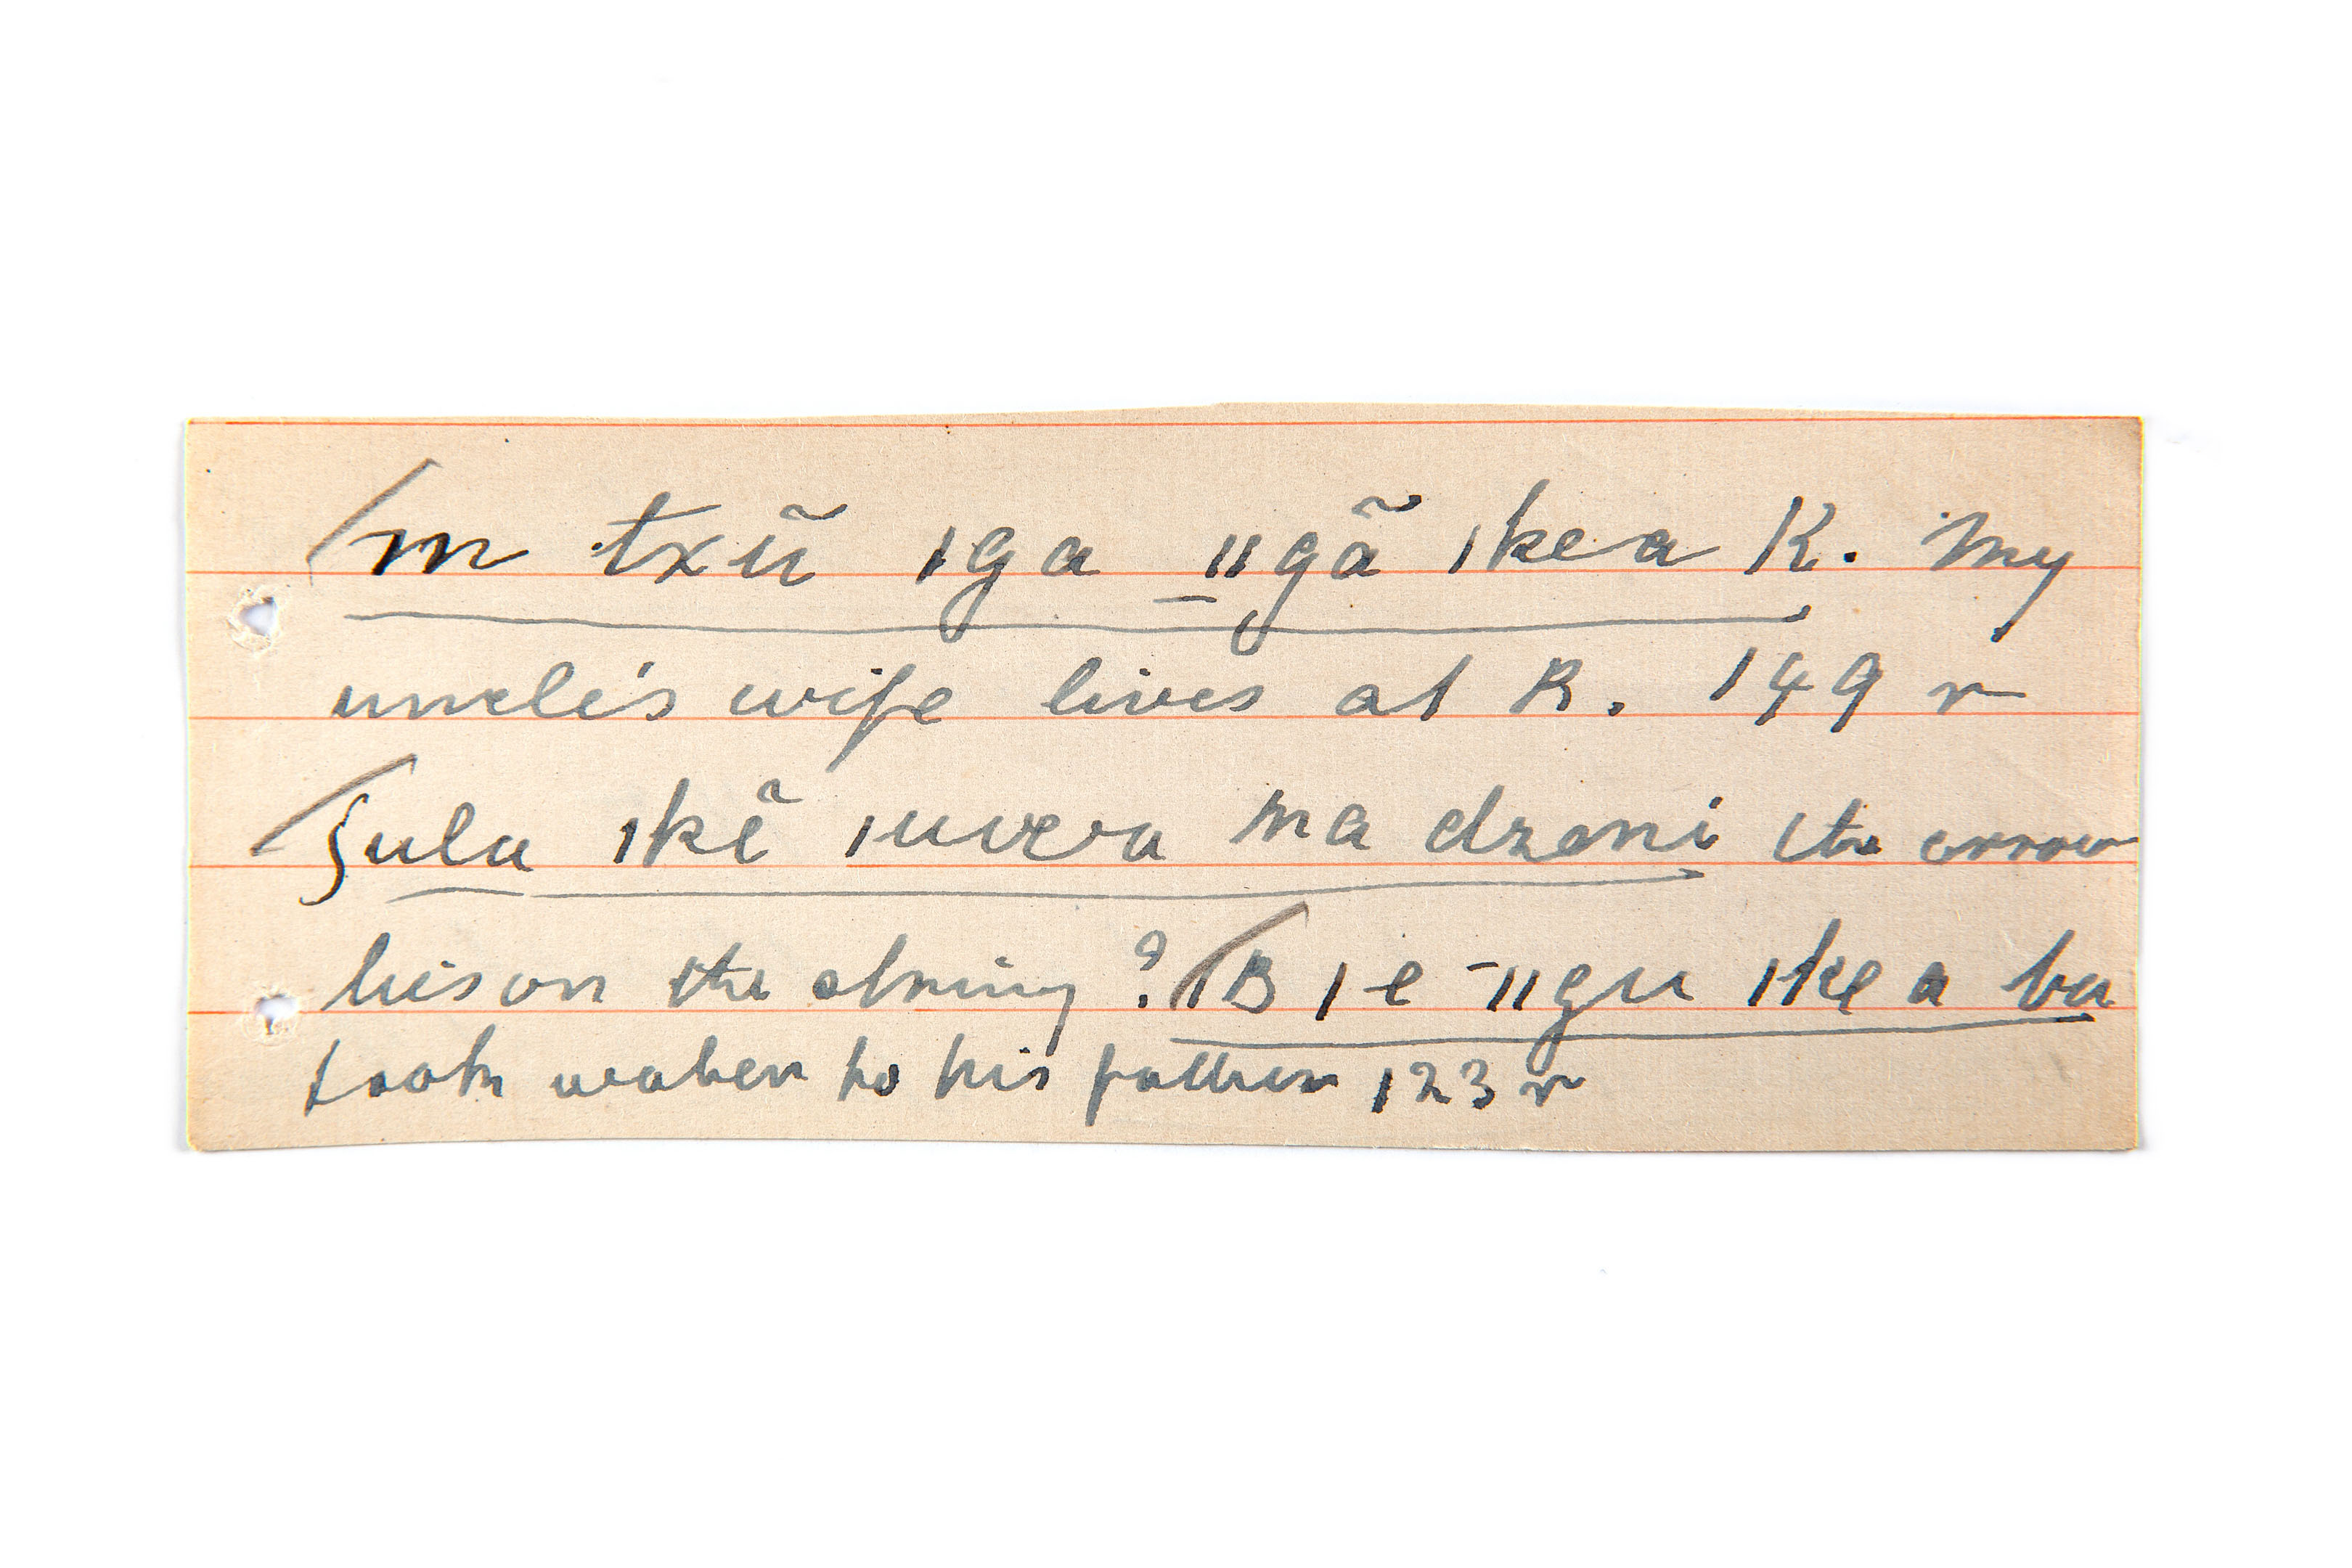 m txũ ıga ıı̱gã ıkea K. My
uncle's wife lives at K. 149 r
ʒula ıkẽ ıuvera ma dzeni the arrow
lies on the string? B ı e -ııgu ıke a ba
took water to his father 123 r